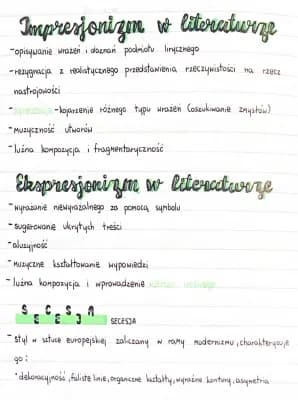 Impresjonizm w literaturze
-opisywanie wrażeń i doznań podmiotu lirycznego
-rezygnacja z realistycznego przedstawienia rzeczywistości na rzecz
nastrojowości
-synestezja -kojarzenie różnego typu wrażeń (oszukiwanie zmysłów)
-muzyczność utworów
-luźna kompozycja i fragmentaryczność
Ekspresjonizm w literaturze
-wyrażanie niewyrażalnego za pomocą symbolu
-sugerowanie ukrytych treści
-aluzyjność
-muzyczne kształtowanie wypowiedzi
-luźna kompozycja i wprowadzenie wiersza wolnego
SECESJA SECESJA
-styl w sztuce europejskiej zaliczany w ramy modernizmu, charakteryzuje
go:
*dekoracyjność, faliste linie, organiczne kształty, wyraźne kontury, asymetria